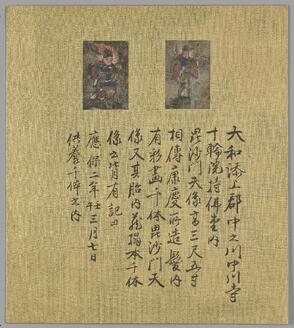 大和添上郡中之川中川寺
十輪院持佛堂内
毘沙門天像高三尺五寸
相傳康慶所造髪内
有彩畫千体毘沙門天
像又其胎内在摺本千体
像之此有記曰
應保二年壬三月七日
供養千体之内